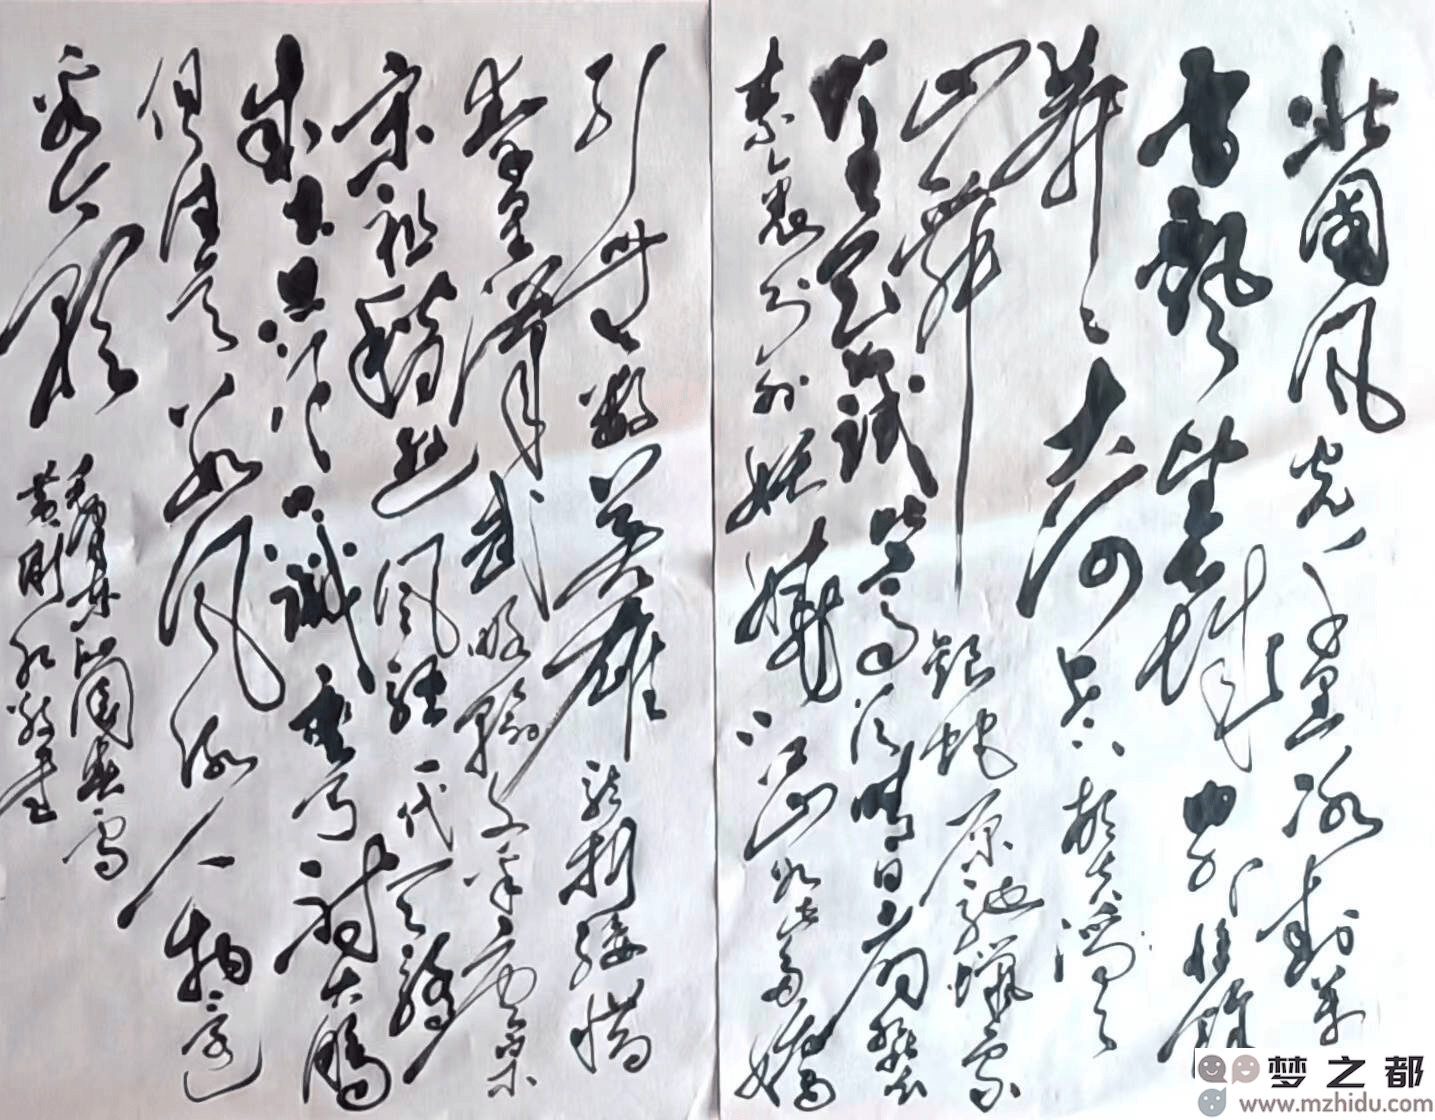 北国风光千里冰封万
雪飘望长城内外惟馀
莽莽大河上下顿失滔滔
山舞银蛇原驰蜡象
天公试比高须晴日看红装
素裹分外妖娆江山如此多娇
引无数英雄竞折腰惜
秦皇汉武略输文采唐宗
宋祖稍逊风骚一代天骄
成吉思汗只识弯弓射大鵰
俱往矣数风流人物还
看今朝
毛泽东沁园春雪
黄刚书
梦之都
www.mzhidu.com